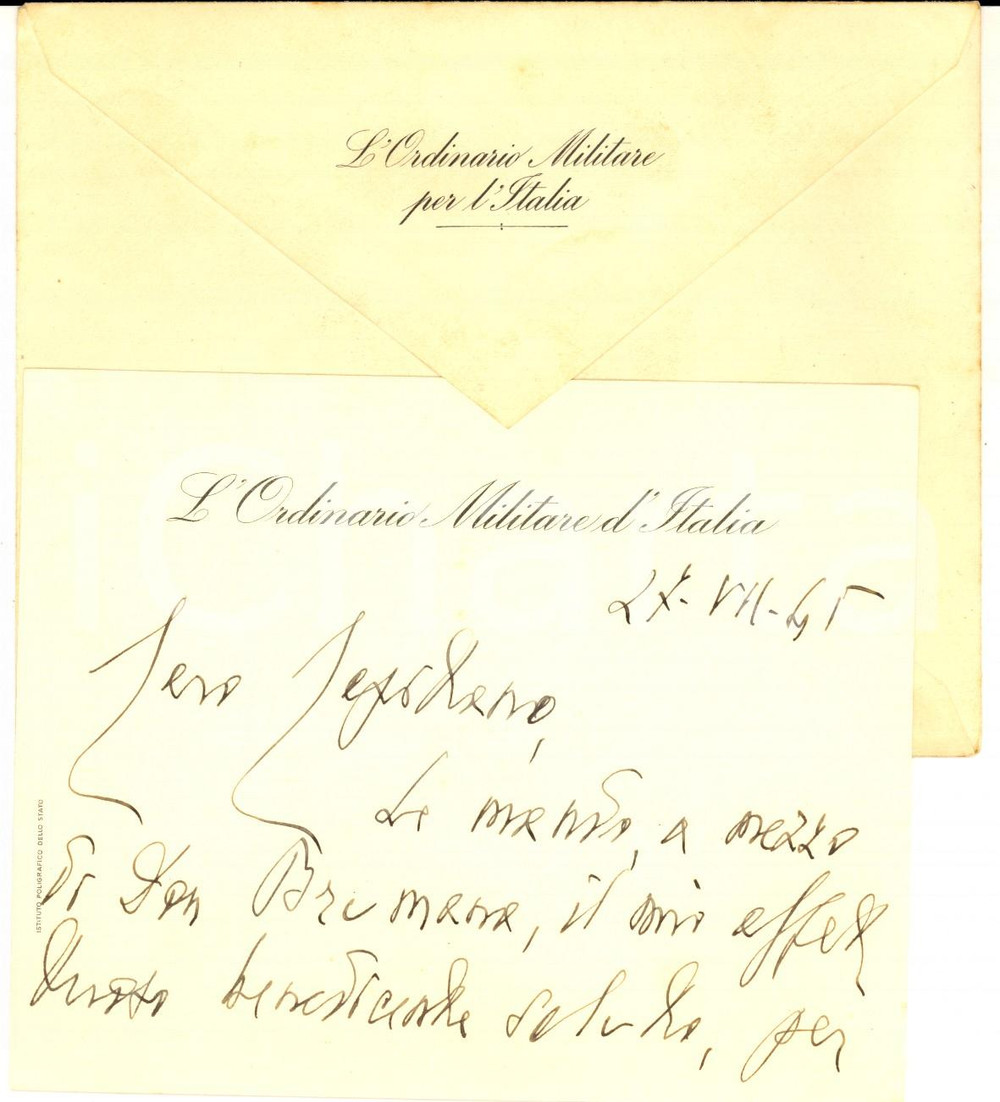 L'Ordinario Militare
per l'Italia
L'Ordinario Militare d'Italia
27-VII-45
Le mando, a mezzo
di Don Brumana, il mio affet
tuoso benedicente saluto, per
ISTITUTO POLIGRAFICO DELLO STATO